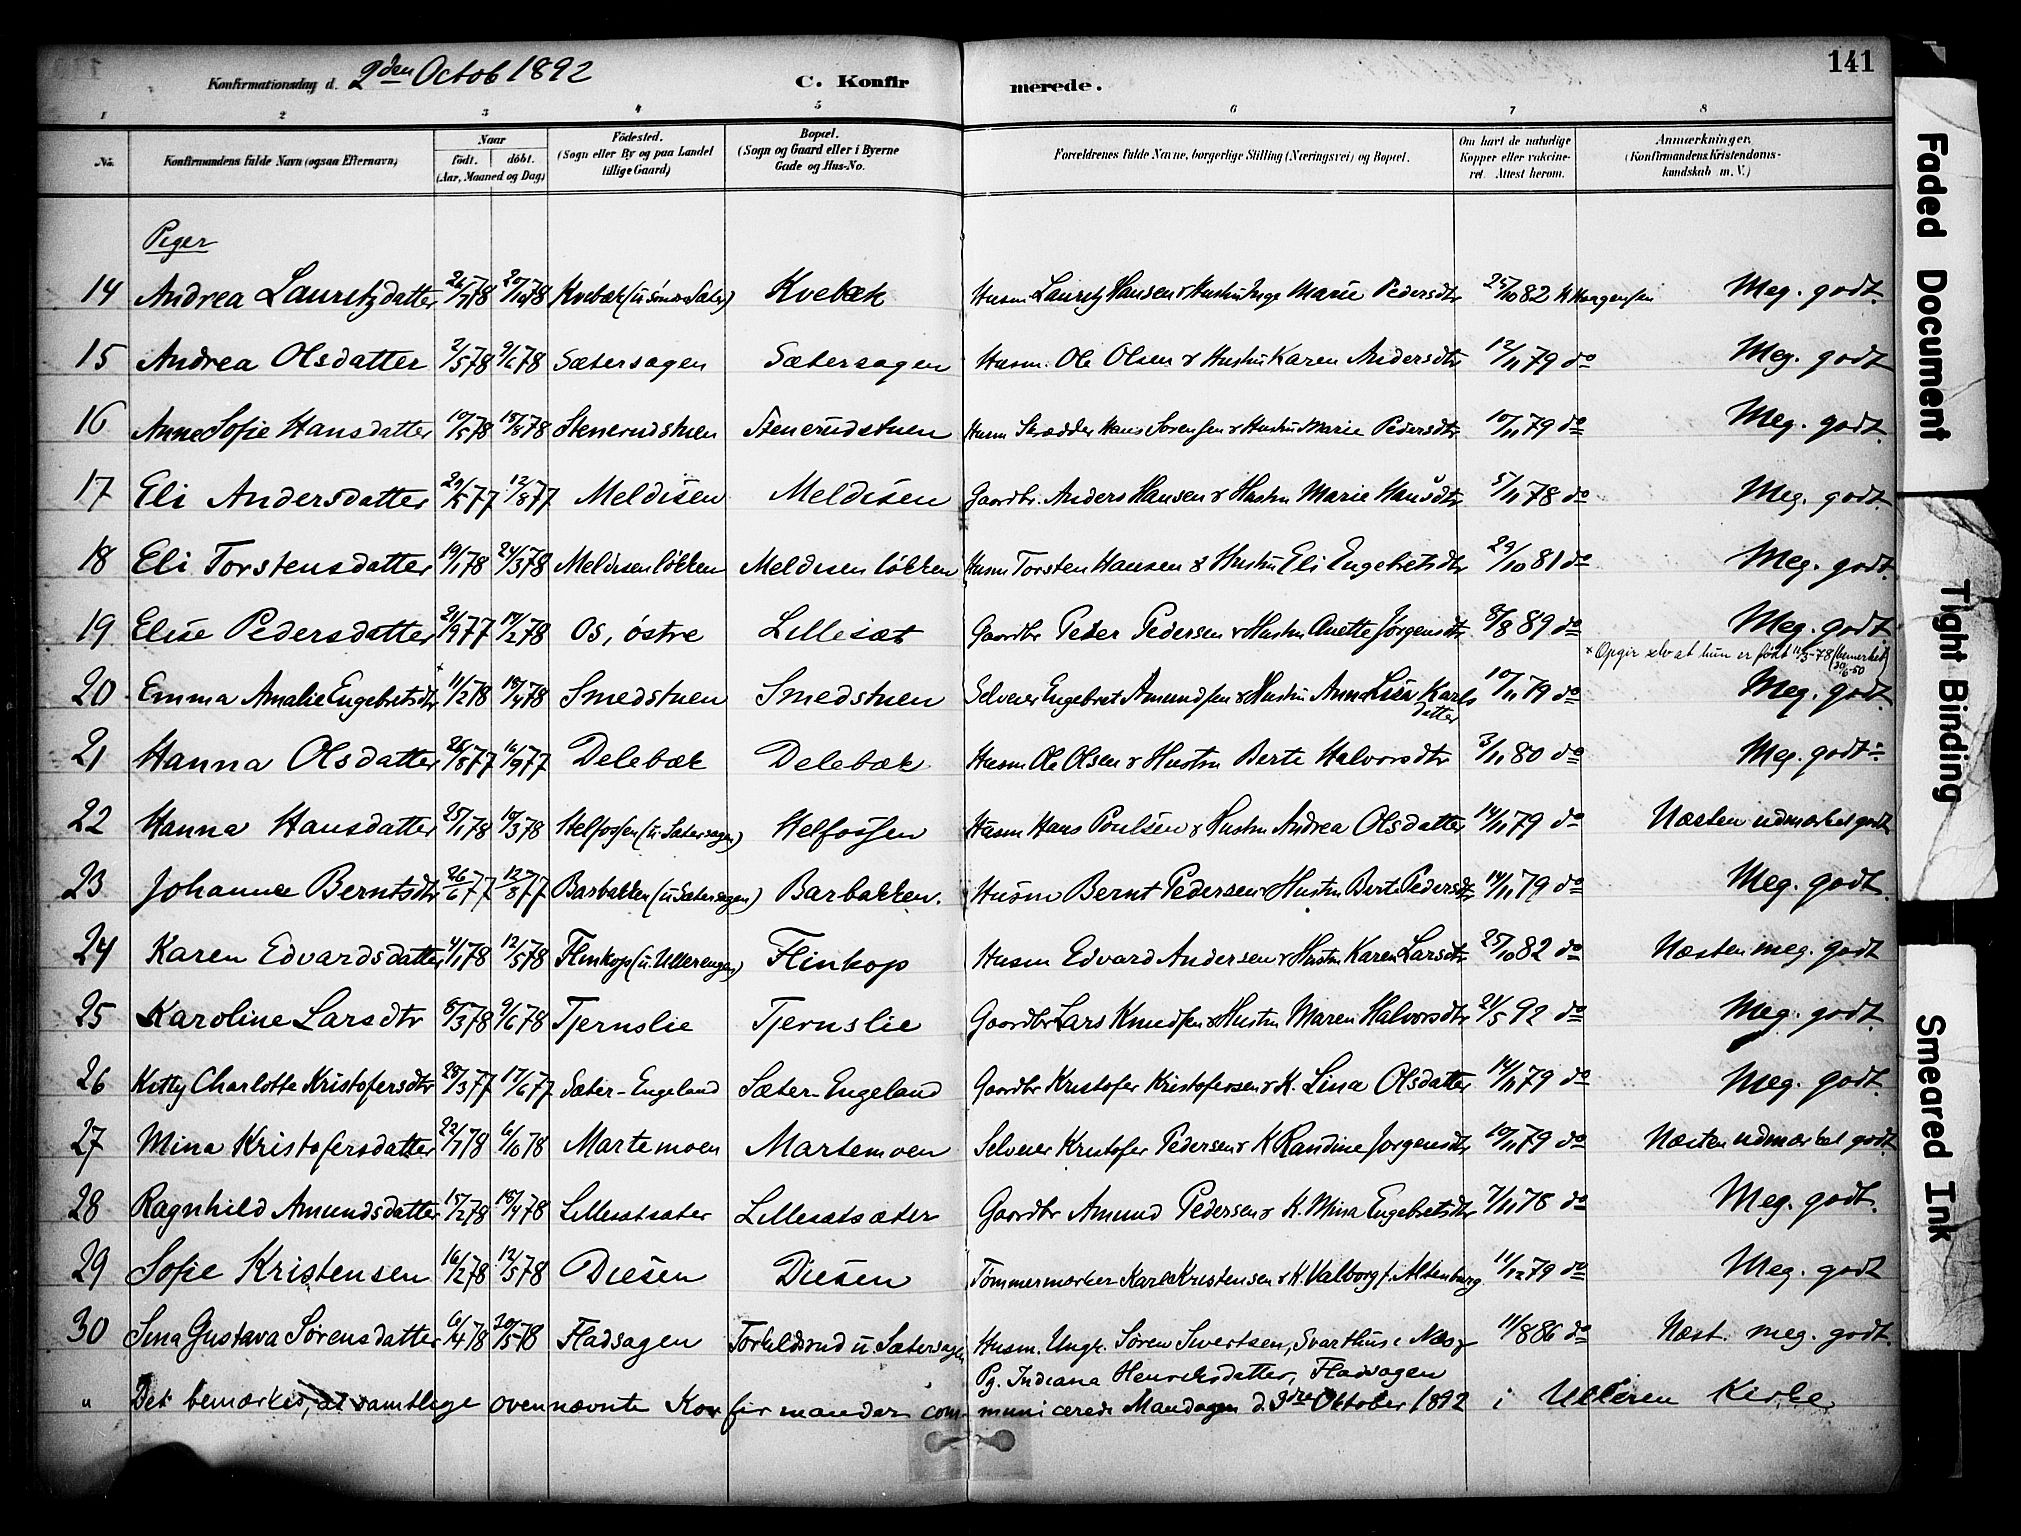 141
Konfirmationsdag d. 2den Octob 1892 C. Konfirmerede.
1 2 3 4 5 6 7 8
No. Konfirmandens fulde Navn (ogsaa Efternavn) Naar født. døbt. (Aar, Maaned og Dag) Fødested. (Sogn eller By og paa Landet tillige Gaard) Bopæl. (Sogn og Gaard eller i Byerne Gade og Hus-No. Forældrenes fulde Navne, borgerlige Stilling (Næringsvei) og Bopæl. Om havt de naturlige Kopper eller vakcineret. Attest herom. Anmærkninger. (Konfirmandens Kristendomskundskab m. V.)
Piger
14 Andrea Lauritzdatter 26/7 78 20/10 78 Kvebæk (u Søndre Sæter) Kvebæk Husm Lauritz Hansen & Hustru Inge Marie Pedersdtr 25/10 82 K Haagensen Meg. godt.
15 Andrea Olsdatter 2/5 78 9/6 78 Sætersagen Sætersagen Husm. Ole Olsen & Hustru Karen Andersdtr 12/11 79 do Meg. godt
16 Anne Sofie Hansdatter 10/5 78 18/8 78 Stenerudstuen Stenerudstuen Husm Skrædder Hans Sørensen & Hustru Marie Pedersdtr 10/11 79 do Meg. godt.
17 Eli Andersdatter 29/5 77 12/8 77 Meldisen Meldisen Gaardbr. Anders Hansen & Hustru Marie Hansdtr 5/11 78 do Meg. godt.
18 Eli Torstensdatter 19/1 78 24/3 78 Meldisenløkken Meldisenløkken Husm Torsten Hansen & Hustru Eli Engebretsdtr 29/10 81 do Meg. godt.
19 Elise Pedersdatter 21/9 77 17/2 78 Os, østre Lillesæt Gaardbr Peder Pedersen & Hustru Anette Jørgensdtr 8/8 89 do Meg. godt
× Opgir selv at hun er født 11/3-78 (bemerket 30/6-50)
20 Emma Amalie Engebretsdtr × 11/2 78 18/4 78 Smedstuen Smedstuen Selveier Engebret Amundsen & Hustru Anne Lise Karlsdatter 10/11 79 do Meg. godt.
21 Hanna Olsdatter 28/8 77 16/9 77 Delebæk Delebæk Husm Ole Olsen & Hustru Berte Halvorsdtr 3/11 80 do Meg. godt
22 Hanna Hansdatter 25/1 78 10/3 78 Helfossen (u Sætersagen) Helfossen Husm Hans Poulsen & Hustru Andrea Olsdatter 14/11 79 do Næsten udmærket godt
23 Johanne Berntsdtr 26/6 77 12/8 77 Barbakken (u Sætersagen) Barbakken. Husm Bernt Pedersen & Hustru Berte Pedersdtr 14/11 79 do Meg. godt.
24 Karen Edvardsdatter 4/1 78 12/5 78 Flinkop (u. Ullerengen) Flinkop Husm Edvard Andersen & Hustru Karen Larsdtr 25/10 82 do Næsten meg. godt
25 Karoline Larsdtr 8/3 78 9/6 78 Tjernslie Tjernslie Gaardbr Lars Knudsen & Hustru Maren Halvorsdtr 21/5 92 do Meg. godt.
26 Kitty Charlotte Kristofersdtr 28/3 77 17/6 77 Sæter-Engeland Sæter-Engeland Gaardbr Kristofer Kristofersen & K. Lina Olsdatter 14/11 79 do Meg. godt.
27 Mina Kristofersdatter 22/7 78 6/10 78 Martemoen Martemoen Selveier Kristofer Pedersen & K Randine Jørgensdtr 10/11 79 do Næsten udmærket godt.
28 Ragnhild Amundsdatter 15/2 78 18/4 78 Lillesætsæter Lillesætsæter Gaardbr Amund Pedersen & K. Mina Engebretsdtr 7/11 78 do Meg. godt.
29 Sofie Kristensen 16/2 78 12/5 78 Diesen Diesen Tømmermærker Karl Kristensen & K. Valborg f. Altenburg 11/12 79 do Meg. godt
30 Sina Gustava Sørensdatter 6/4 78 20/5 78 Fladsagen Torkildsrud u Sætersagen Husm. Ungk. Søren Sivertsen, Svarthus i Næs & 11/8 86 do Næst. meg. godt.
Pg. Indiana Henriksdatter, Fladsagen
" Det bemærkes, at samtlige ovennævnte Konfirmander communicerede Mandagen d. 3dje Oktober 1892 i Ulleren Kirke
Faded Document
Tight Binding
Smeared Ink